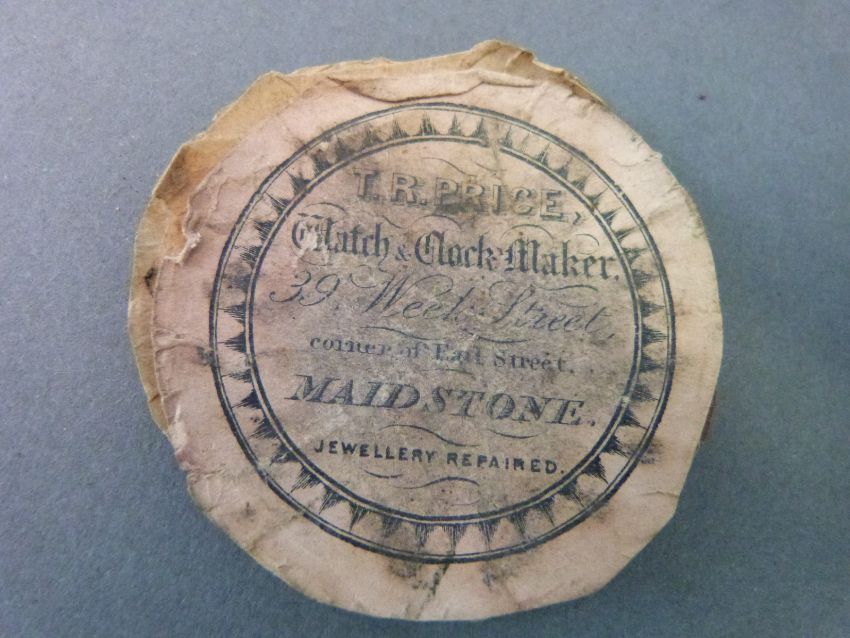 T. R. PRICE,
Watch & Clock Maker.
39, Week Street,
corner of Earl Street.
MAIDSTONE.
JEWELLERY REPAIRED.